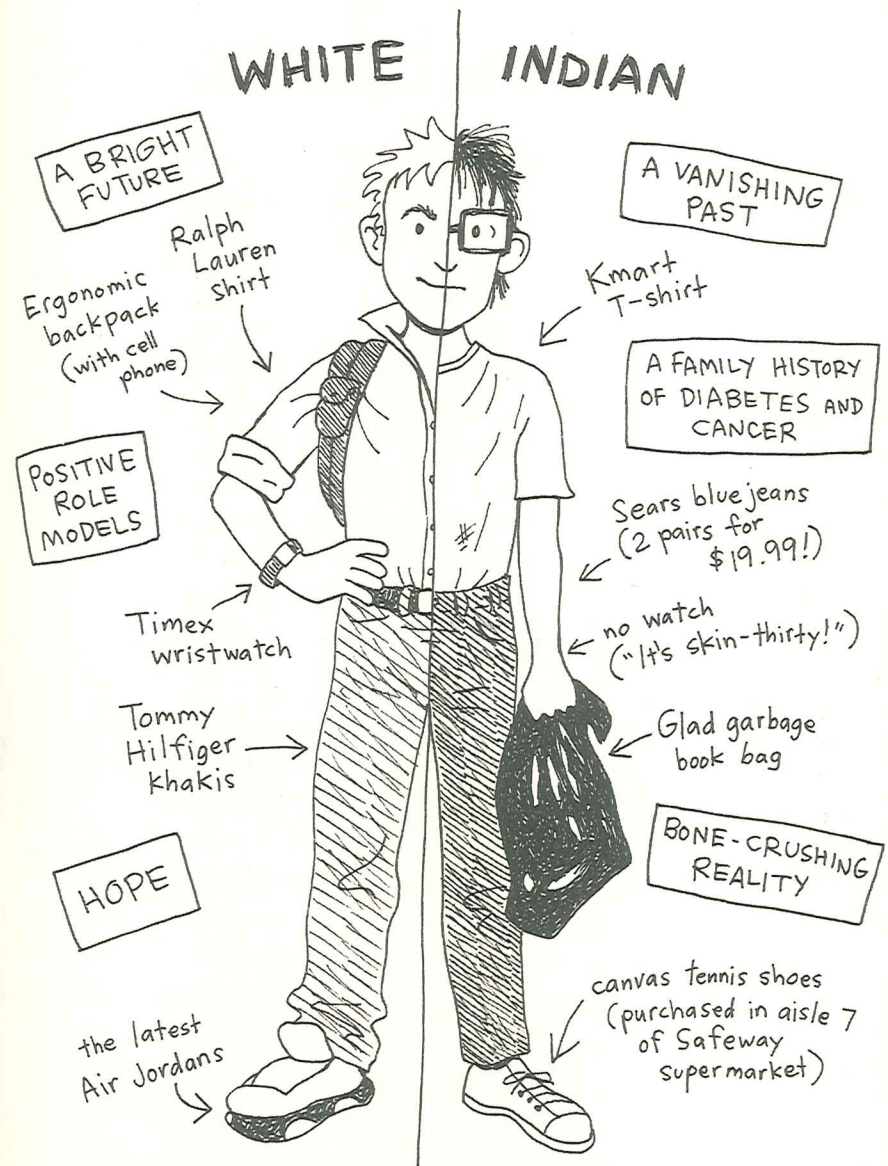 WHITE
INDIAN
A BRIGHT
FUTURE
Ralph
Lauren
shirt
Ergonomic
backpack
(with cell
phone)
POSITIVE
ROLE
MODELS
Timex
wristwatch
Tommy
Hilfiger
Khakis
HOPE
the latest
Air Jordans
A VANISHING
PAST
Kmart
T-shirt
A FAMILY HISTORY
OF DIABETES AND
CANCER
Sears blue jeans
(2 pairs for
$19.99!)
no watch
("It's skin-thirty!")
Glad garbage
book bag
BONE-CRUSHING
REALITY
canvas tennis shoes
(purchased in aisle 7
of Safeway
supermarket)